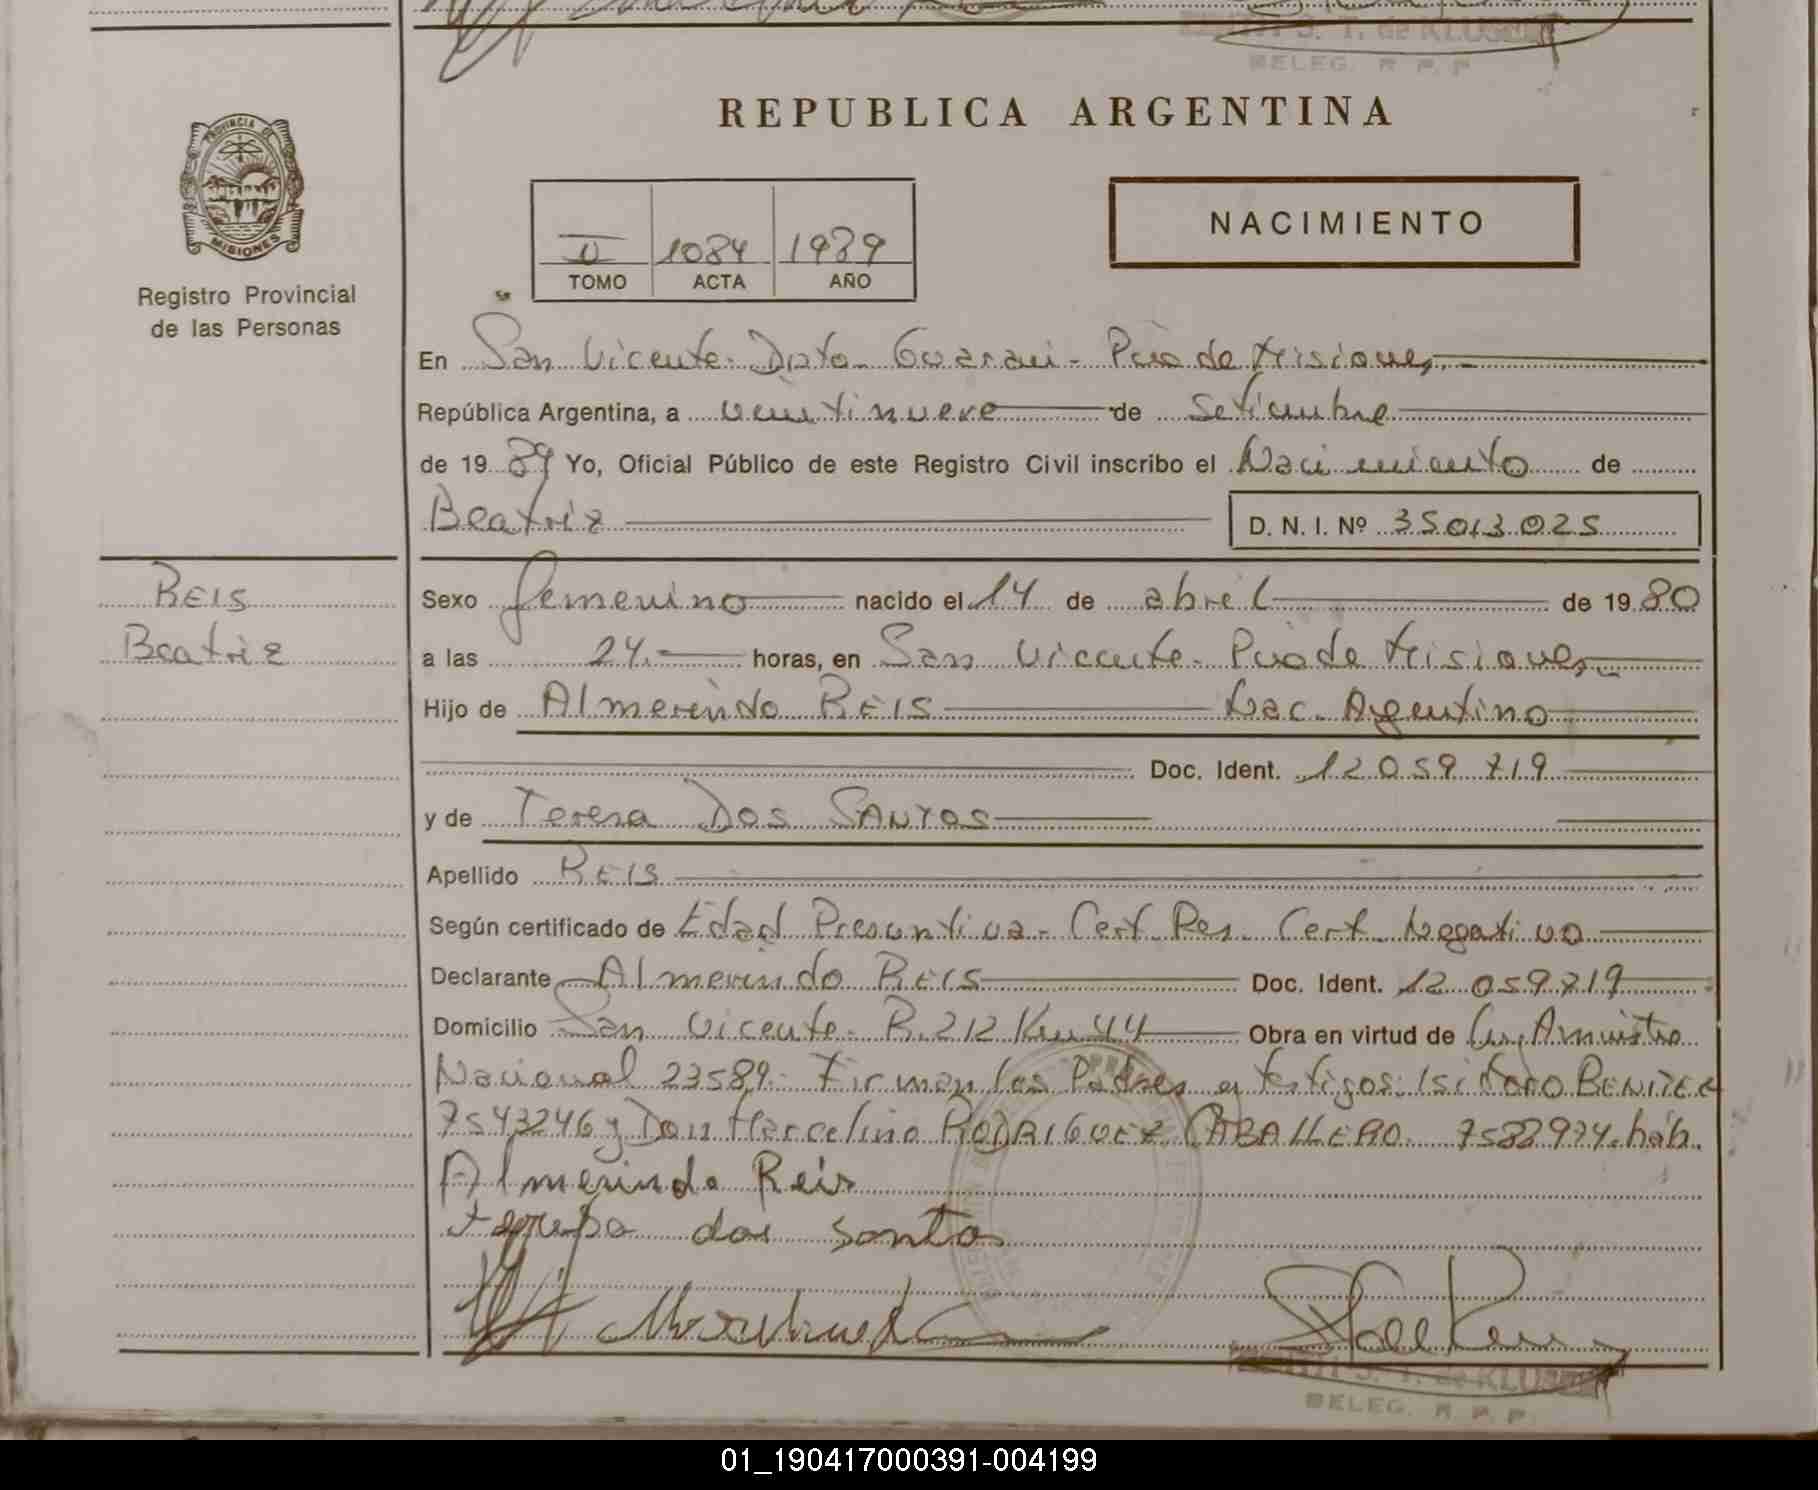 S. T. de KLUSENER
DELEG. R. P. P.
REPUBLICA ARGENTINA
PROVINCIA DE
MISIONES
NACIMIENTO
II 1084 1989
TOMO ACTA AÑO
Registro Provincial
de las Personas
En San Vicente. Dpto. Guarani - Pcia de Misiones
República Argentina, a veintinueve de Setiembre
de 19 89 Yo, Oficial Público de este Registro Civil inscribo el Nacimiento de
Beatriz D. N. I. Nº 35.013.025
REIS
Beatriz
Sexo femenino nacido el 14 de abril de 19 80
a las 24. horas, en San Vicente. Pcia de Misiones
Hijo de Almerindo REIS Nac. Argentino
Doc. Ident. 12.059.719
y de Teresa DOS SANTOS
Apellido REIS
Según certificado de Edad Presuntiva. Cert. Res. Cert. Negativo
Declarante Almerindo REIS Doc. Ident. 12.059.719
Domicilio San Vicente. R. 212 Km 44 Obra en virtud de Ley Amnistia
Nacional 23589. Firman los Padres y testigos: Isidoro BENITEZ
7543246 y Don Marcelino RODRIGUEZ CABALLERO 7582974. háb.
Almerindo Reis
teresa dos santos
S. T. de KLUSENER
DELEG. R. P. P.
01_190417000391-004199